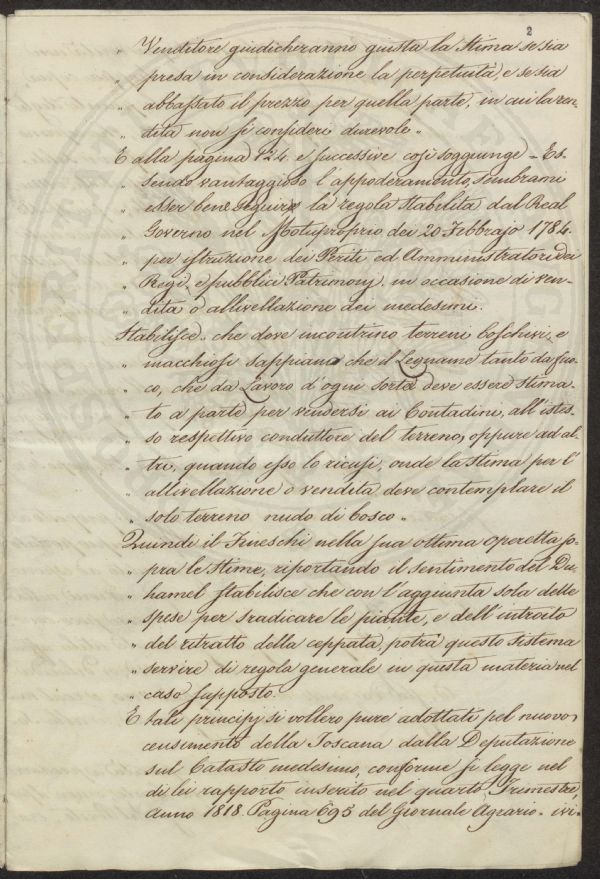 2
„ Venditore giudicheranno giusta la Stima se sia
„ presa in considerazione la perpetuità, e se sia
„ abbassato il prezzo per quella parte, in cui la ren-
„ dita non si consideri durevole „
E alla pagina 124. e successive così soggiunge = Es-
„ sendo vantaggioso l'appoderamento, sembrami
„ esser bene seguire la regola stabilita dal Real
„ Governo nel Motuproprio dei 20 Febbrajo 1784.
„ per istruzione dei Periti ed Amministratori dei
„ Regj, e pubblici Patrimonj, in occasione di ven-
„ dita o allivellazione dei medesimi.
Stabilisce „ che dove incontrino terreni boschivi, e
„ macchiosi sappiano che il Legname tanto da fuo-
„ co, che da Lavoro d'ogni sorta deve essere stima-
„ to a parte per vendersi ai Contadini, all'istes-
„ so respettivo conduttore del terreno, oppure ad al-
„ tri, quando esso lo ricusi, onde la stima per l'
„ allivellazione o vendita deve contemplare il
„ solo terreno nudo di bosco „
Quindi il Frueschi nella sua ottima operetta so-
„ pra le stime, riportando il sentimento del Du-
„ hamel stabilisce che con l'aggiunta sola delle
„ spese per sradicare le piante, e dell'introito
„ del ritratto della ceppata, potrà questo sistema
„ servire di regola generale in questa materia nel
„ caso supposto.
E tali principj si vollero pure adottati pel nuovo
censimento della Toscana dalla Deputazione
sul Catasto medesimo, conforme si legge nel
di lei rapporto inserito nel quarto Trimestre,
Anno 1818. Pagina 695 del Giornale Agrario = ivi =